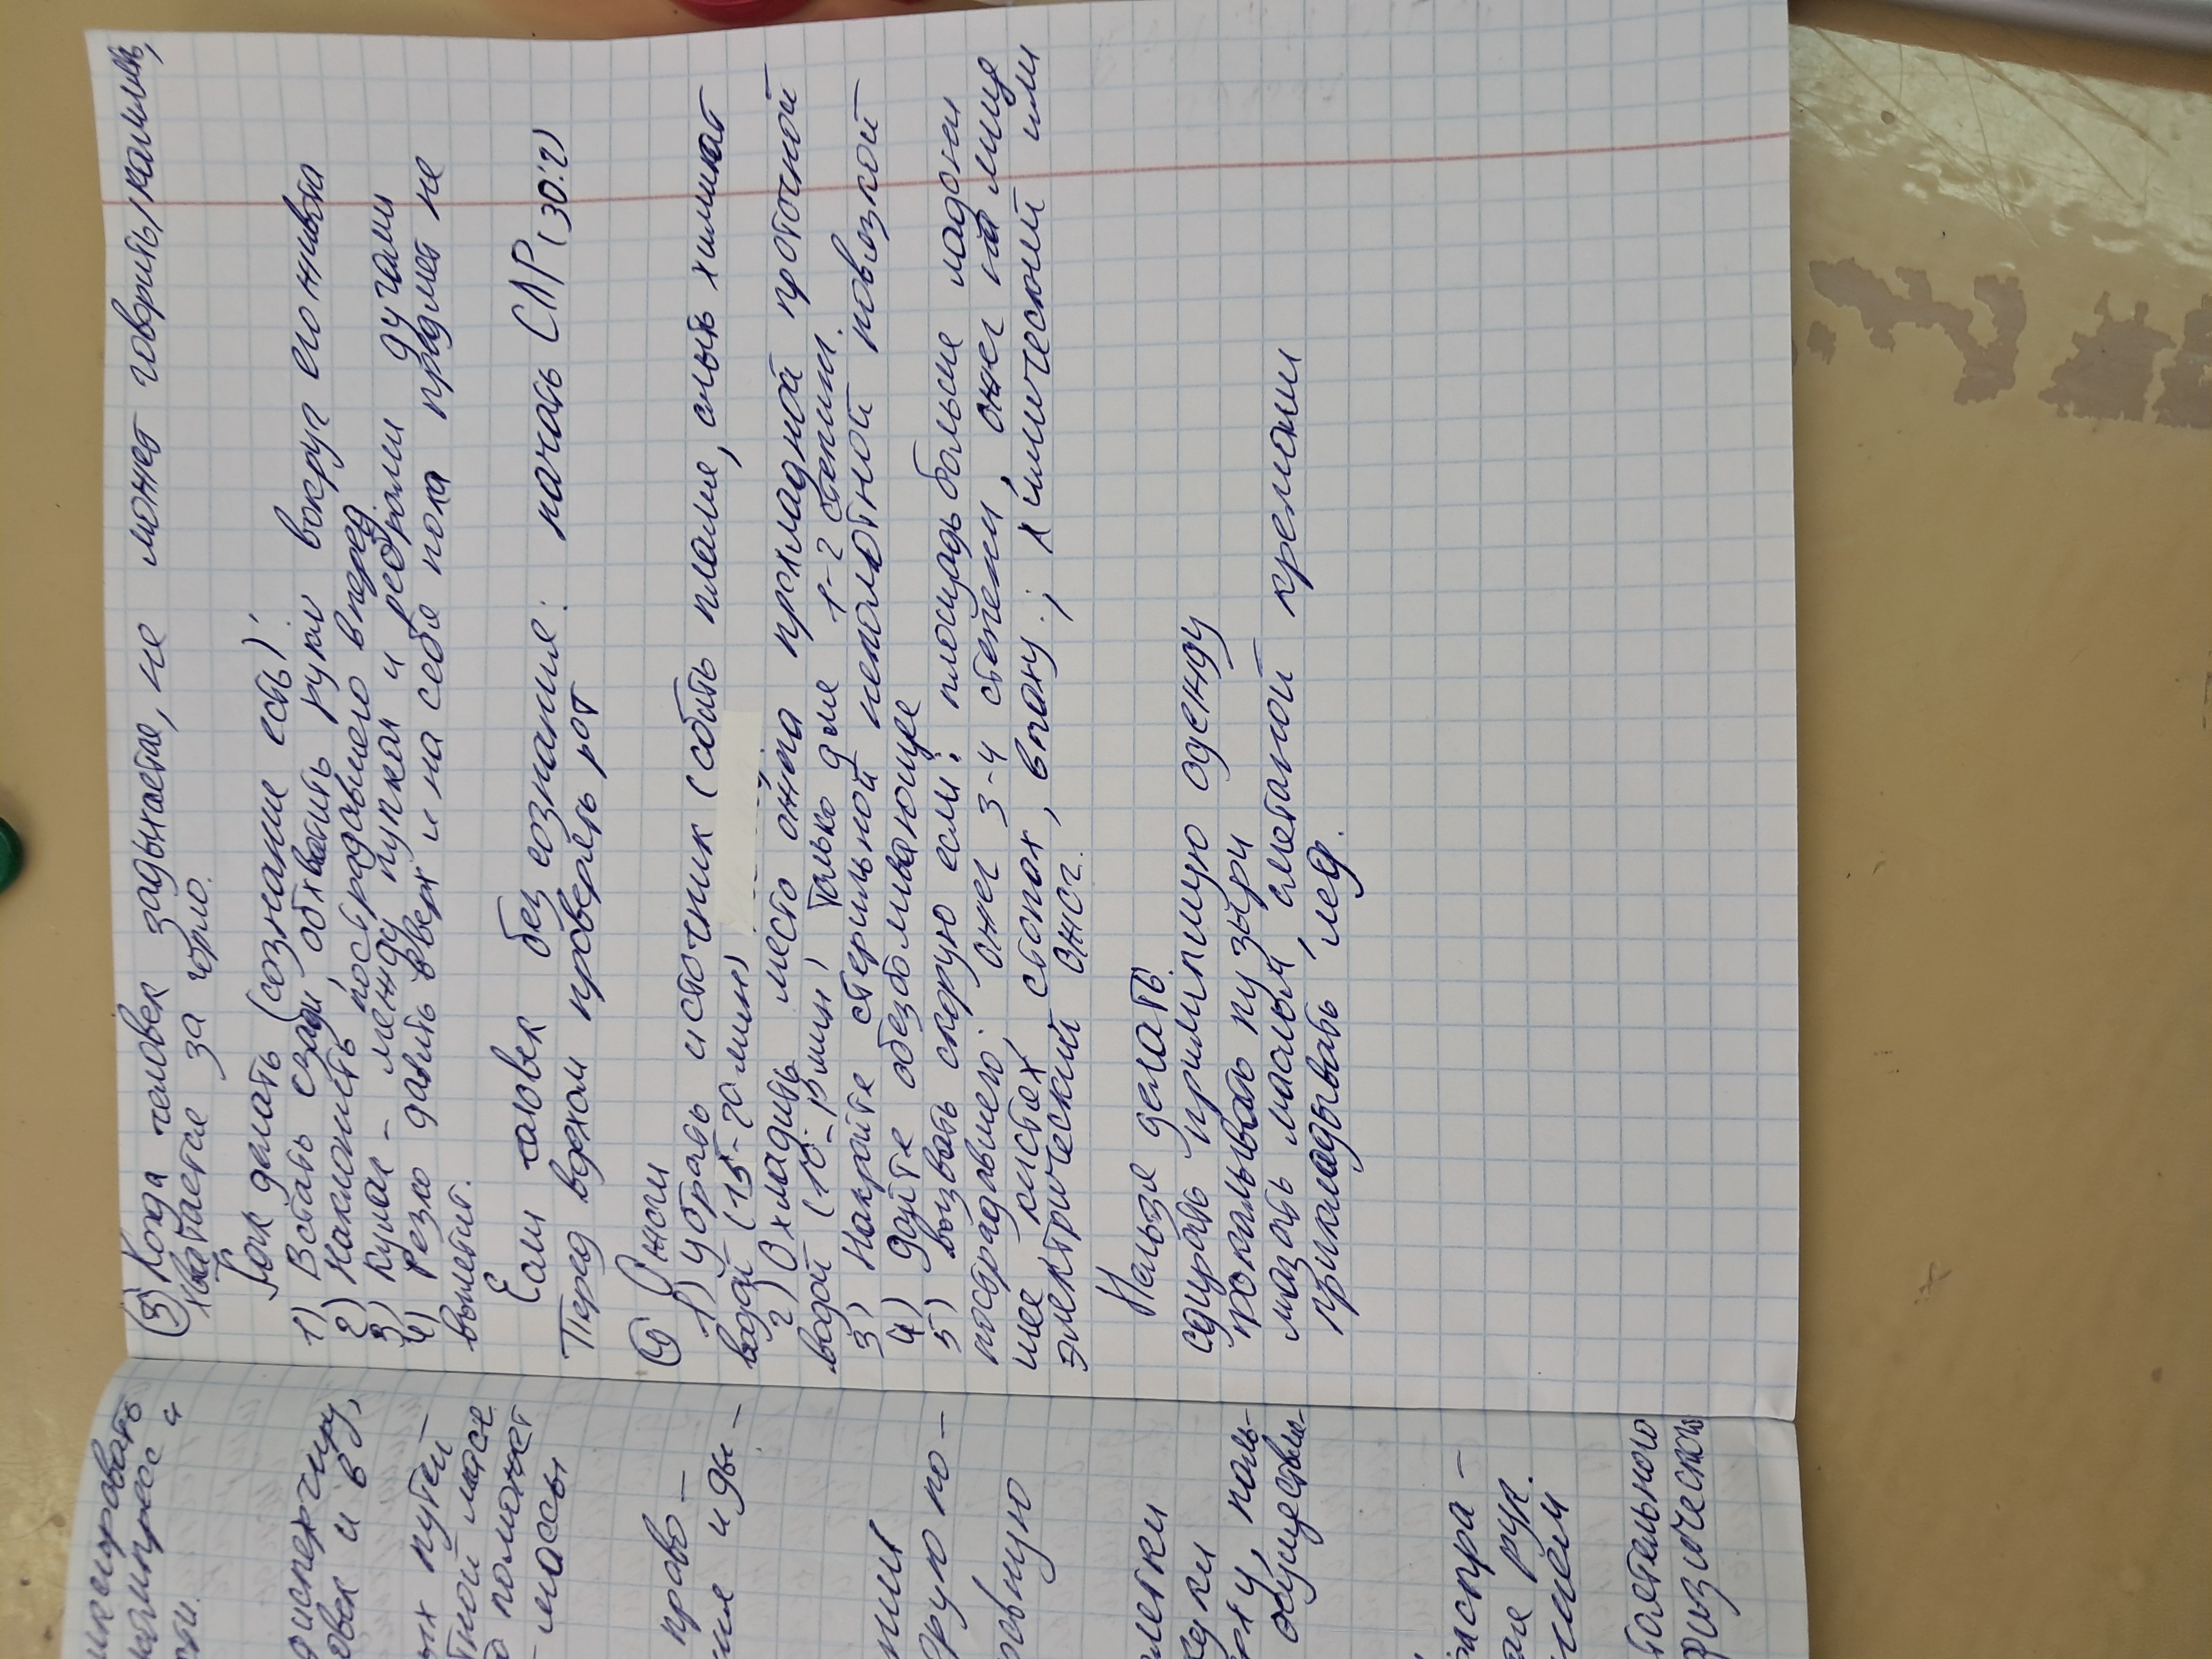 ③ Когда человек задыхается, не может говорить/кашлять,
хватается за горло.
Как делать (сознание есть):
1) Встать сзади, обхватить руки вокруг его живота
2) Наклонить пострадавшего вперед.
3) Кулак - между пупком и ребрами дугами
4) Резко давить вверх и на себя пока предмет не
вылетит.
Если человек без сознание: начать СЛР (30:2)
Перед вдохом проверять рот
④ Ожоги
1) Убрать источник (сбить пламя, смыть химикат
водой (15-20 мин)
2) Охладить место ожога прохладной проточной
водой (10-15 мин) только для 1-2 степени.
3) Накройте стерильной неплотной повязкой
4) Дайте обезболивающее
5) вызвать скорую если: площадь больше ладони
пострадавшего; ожег 3-4 степени, ожег на лице
шее, кистях, стопах, в паху; химический или
электрический ожог.
Нельзя делать:
сдирать прилипшую одежду
прокалывать пузыри
мазать маслом, сметаной кремами
прикладывать лед.
диспергиру
овек и в
ых путей
тной массе
поможет
массы
право-
ние и ды-
рую по-
равную
поль-
осуществля-
распра-
рук.
тоятельного
физической